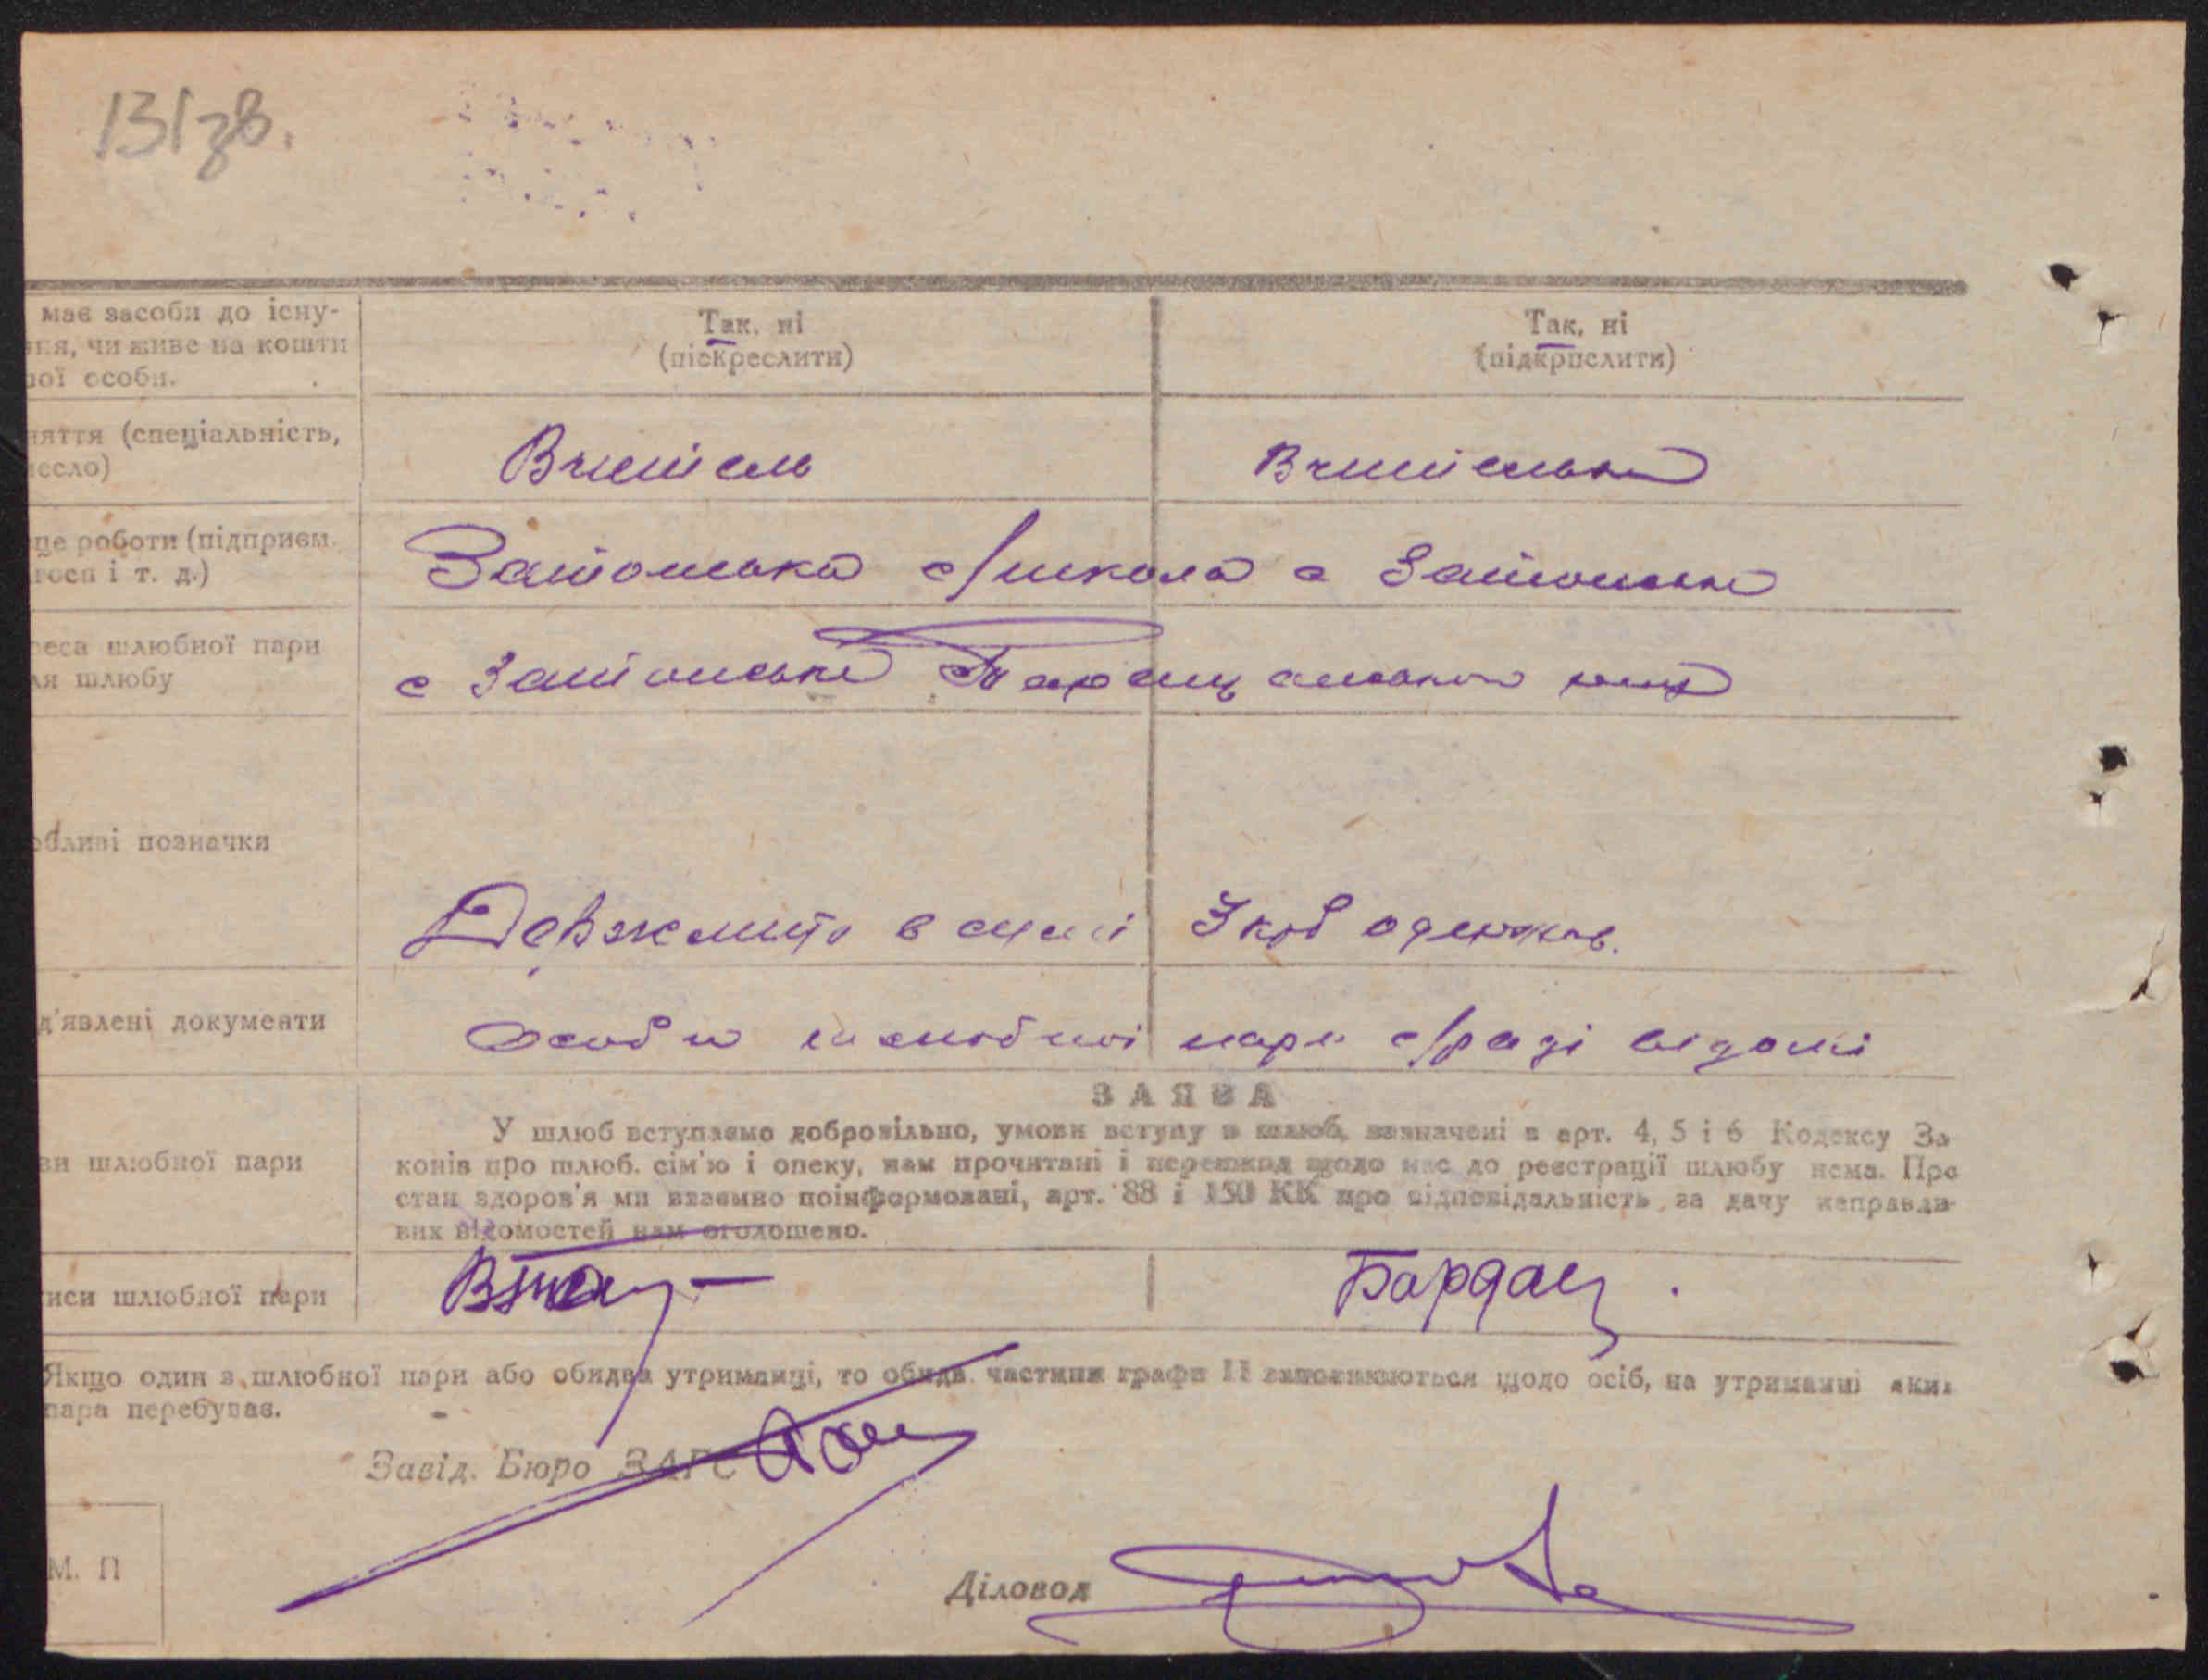 131зв.
має засоби до існу-
ння, чи живе на кошти
ної особи.
Так, ні
(піскреслити)
Так, ні
(підкрпслити)
няття (спеціальність,
месло)
Вчитель
Вчителька
це роботи (підприєм.
госп і т. д.)
школа с
реса шлюбної пари
ля шлюбу
с
обливі позначки
в силі
З крб одержав.
д'явлені документи
Особи шлюбної пари с/раді відомі
ЗАЯВА
У шлюб вступаємо добровільно, умови вступу в шлюб, зазначені в арт. 4, 5 і 6 Кодексу За-
конів про шлюб. сім'ю і опеку, нам прочитані і перешкод щодо нас до реєстрації шлюбу нема. Про
стан здоров'я ми взаємно поінформовані, арт. 88 і 150 КК про відповідальність за дачу неправди-
вих відомостей нам оголошено.
ви шлюбної пари
иси шлюбної пари
Бардац
Якщо один з шлюбної пари або обидва утриманці, то обидв частини графи 11 заповнюються щодо осіб, на утриманні яких
пара перебуває.
Завід. Бюро ЗАГС
М. П
Діловод